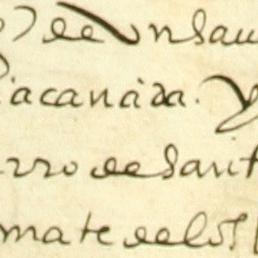 de Un Sau
acanàda. Y
rro de Sant
mate de los